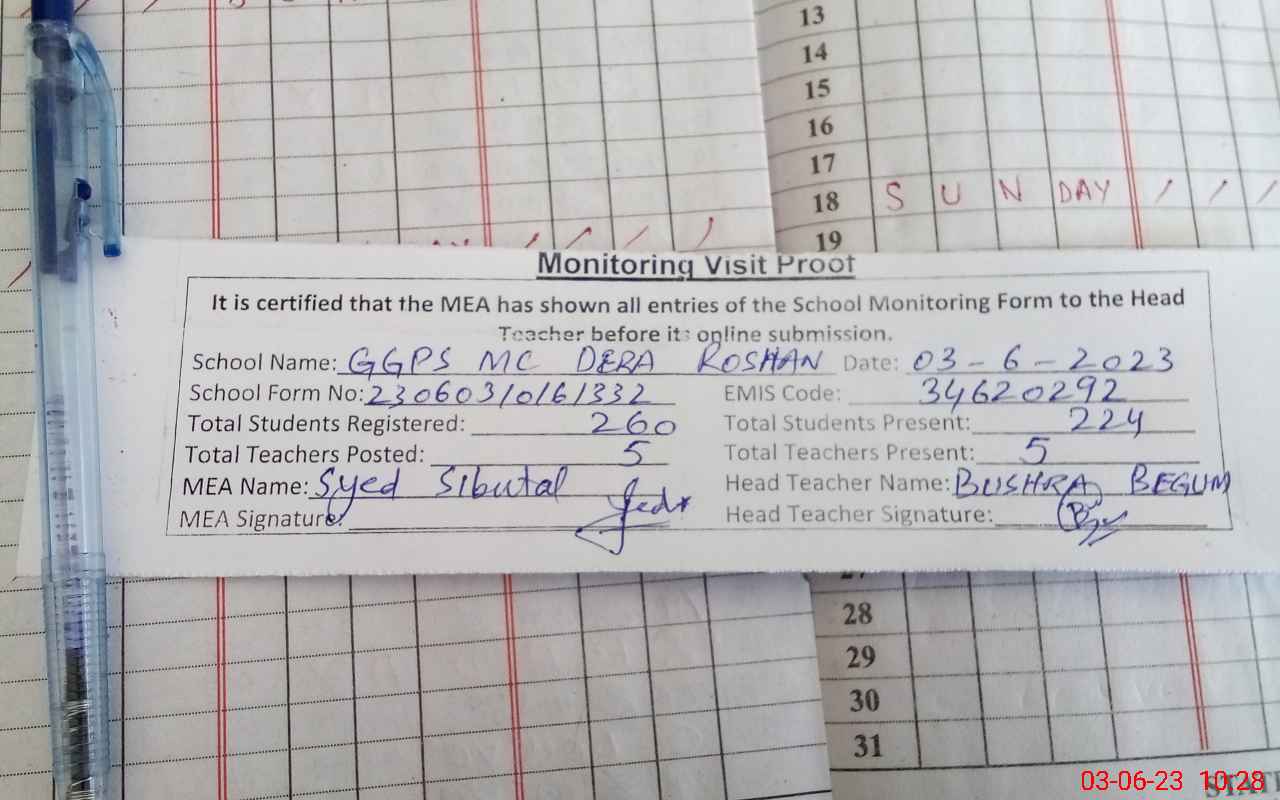 13
14
15
16
17
18 S U N DAY
19
Monitoring Visit Proof
It is certified that the MEA has shown all entries of the School Monitoring Form to the Head
Teacher before its online submission.
School Name: GGPS MC DERA ROSHAN Date: 03-6-2023
School Form No: 230603/0/6/332 EMIS Code: 34620292
Total Students Registered: 260 Total Students Present: 224
Total Teachers Posted: 5 Total Teachers Present: 5
MEA Name: Syed Sibutal Head Teacher Name: BUSHRA BEGUM
MEA Signature: Head Teacher Signature:
28
29
30
31
03-06-23 10:28